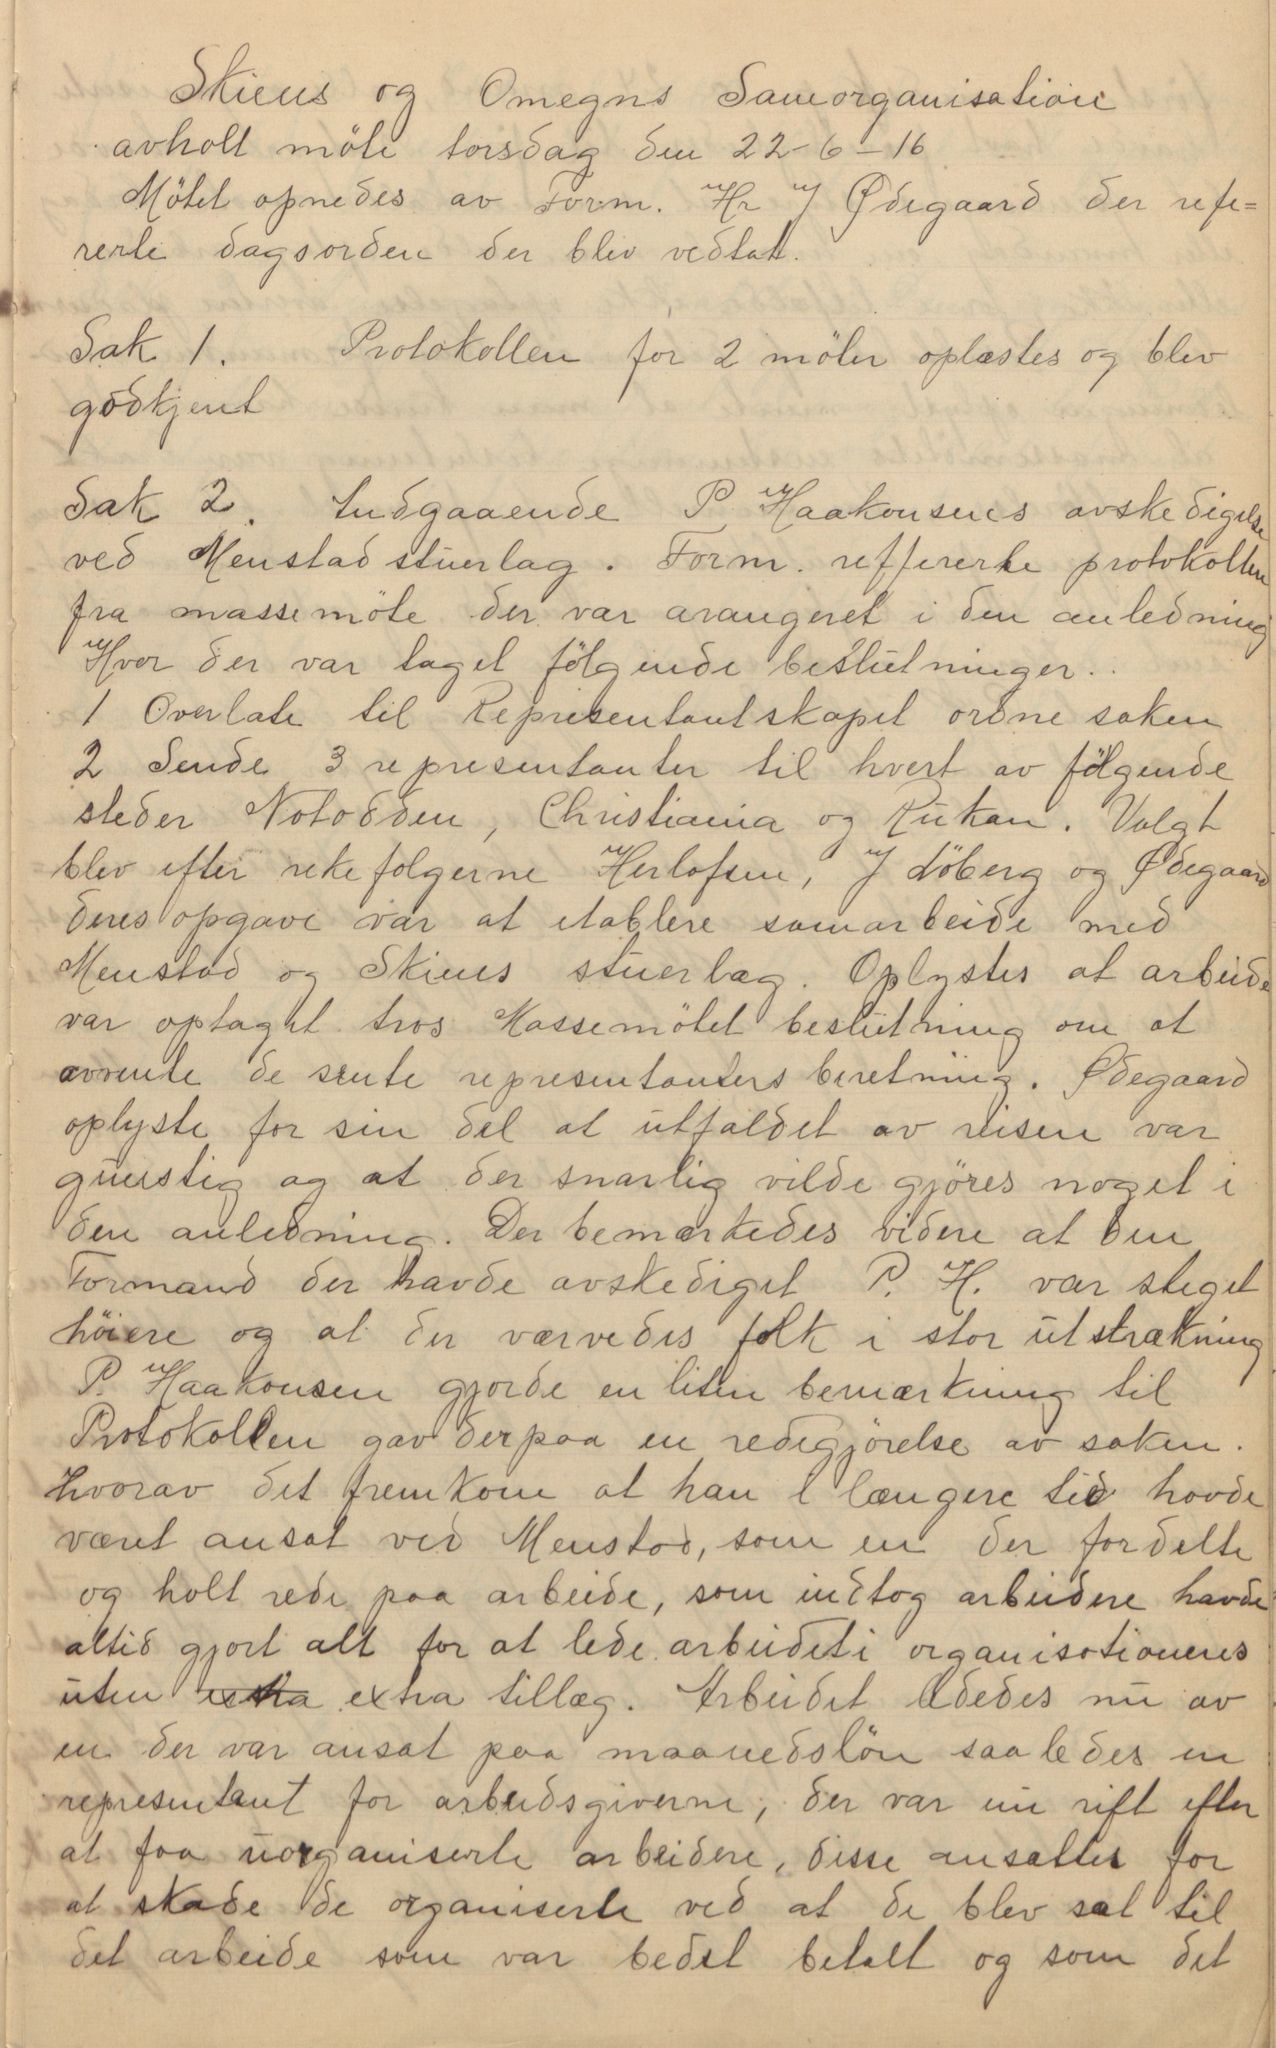 Skiens og Omegns Samorganisation
avholt möte torsdag den 22-6-16
Mötet opnedes av Form. Hr J Ødegaard der refe=
rerte dagsorden der blev vedtatt.
Sak 1. Protokollen for 2 möter oplæstes og blev
godkjent
Sak 2. Indgaaende P. Haakonsens avskedigelse
ved Menstad stuerlag. Form. reffererte protokollen
fra massemöte der var arangeret i den anledning
Hvor der var taget fölgende beslutninger.
1 Overlate til Representantskapet ordne saken
2 Sende 3 representanter til hvert av fölgende
steder Notodden, Christiania og Rukan. Valgt
blev efter rekefolgerne Herlofsen, J Löberg og Ødegaard
deres opgave var at etablere samarbeide med
Menstad og Skiens stuerlag. Oplystes at arbeide
var optaget tros Massemötet beslutning om at
avvente de sente representanters beretning. Ødegaard
oplyste for sin del at utfaldet av reisen var
gunstig og at der snarlig vilde gjöres noget i
den anledning. Der bemærkedes videre at den
Formand der havde avskediget P. H. var steget
höiere og at der værvedes folk i stor utstrækning
P. Haakonsen gjorde en liten bemærkning til
Protokollen gav derpaa en redegjörelse av saken.
Hvorav det fremkom at han i længere tid havde
været ansat ved Menstad, som en der fordelte
og holt rede paa arbeide, som indtog arbeidere havde
altid gjort alt for at lede arbeidet i organisationens
uten extra extra tillæg. Arbeidet lededes nu av
en der var ansat paa maanedslön saaledes en
representant for arbeidsgiverne, der var nu rift efter
at faa uorganiserte arbeidere, disse ansattes for
at skade de organiserte ved at de blev sat til
det arbeide som var bedst betalt og som det